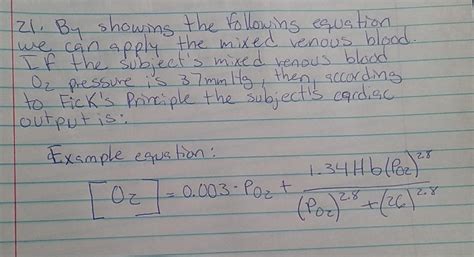 21. By showing the following equation
we can apply the mixed venous blood.
If the subject's mixed venous blood
O₂ pressure is 37mmHg, then, according
to Fick's Principle the subject's cardiac
output is:
Example equation:
[O₂] = 0.003 · P_O₂ + 1.34Hb(P_O₂)^2.8 / (P_O₂)^2.8 + (26)^2.8